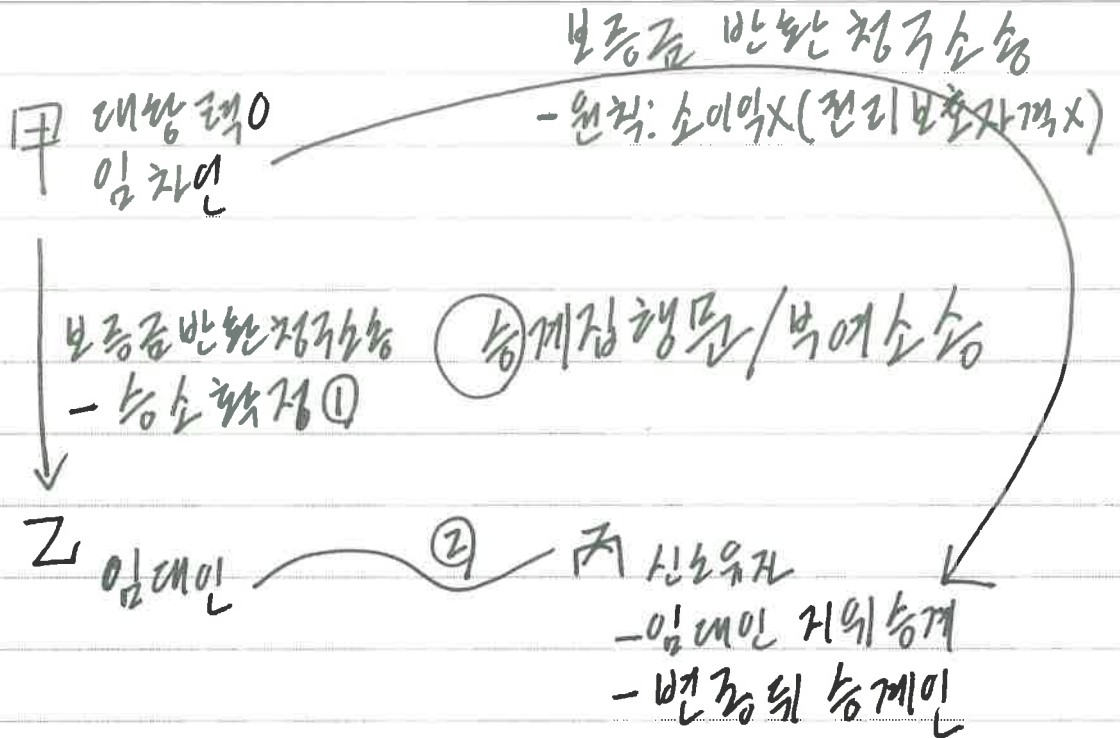 보증금 반환청구소송
- 원칙: 소이익X(권리보호자격X)
甲 대항력O
임차인
보증금반환청구소송
- 승소확정①
승계집행문/부여소송
乙 임대인
②
丙 신소유자
- 임대인 지위승계
- 변종뒤 승계인